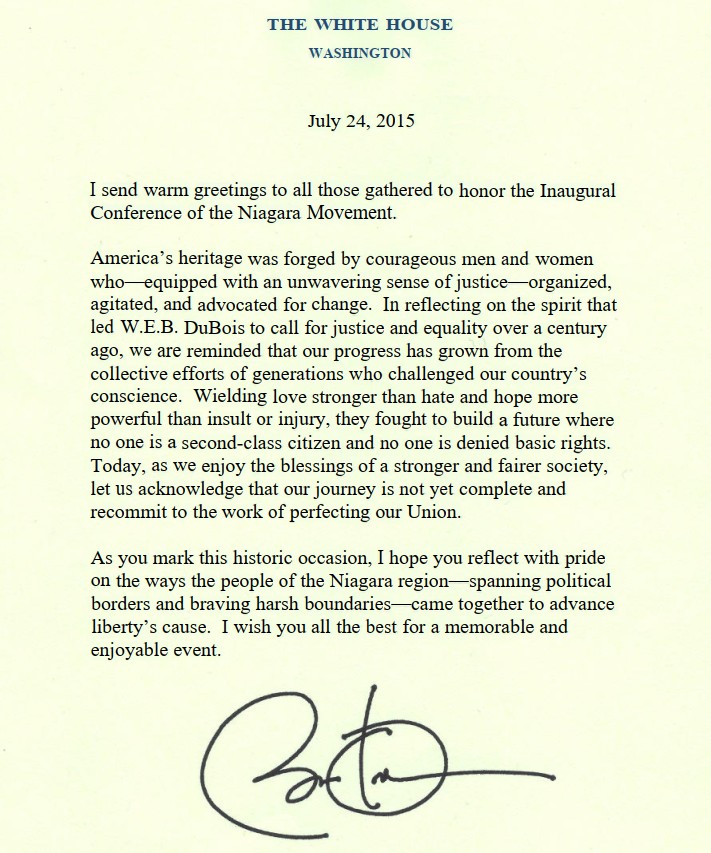 THE WHITE HOUSE
WASHINGTON
July 24, 2015
I send warm greetings to all those gathered to honor the Inaugural
Conference of the Niagara Movement.
America's heritage was forged by courageous men and women
who—equipped with an unwavering sense of justice—organized,
agitated, and advocated for change.  In reflecting on the spirit that
led W.E.B. DuBois to call for justice and equality over a century
ago, we are reminded that our progress has grown from the
collective efforts of generations who challenged our country's
conscience.  Wielding love stronger than hate and hope more
powerful than insult or injury, they fought to build a future where
no one is a second-class citizen and no one is denied basic rights.
Today, as we enjoy the blessings of a stronger and fairer society,
let us acknowledge that our journey is not yet complete and
recommit to the work of perfecting our Union.
As you mark this historic occasion, I hope you reflect with pride
on the ways the people of the Niagara region—spanning political
borders and braving harsh boundaries—came together to advance
liberty's cause.  I wish you all the best for a memorable and
enjoyable event.